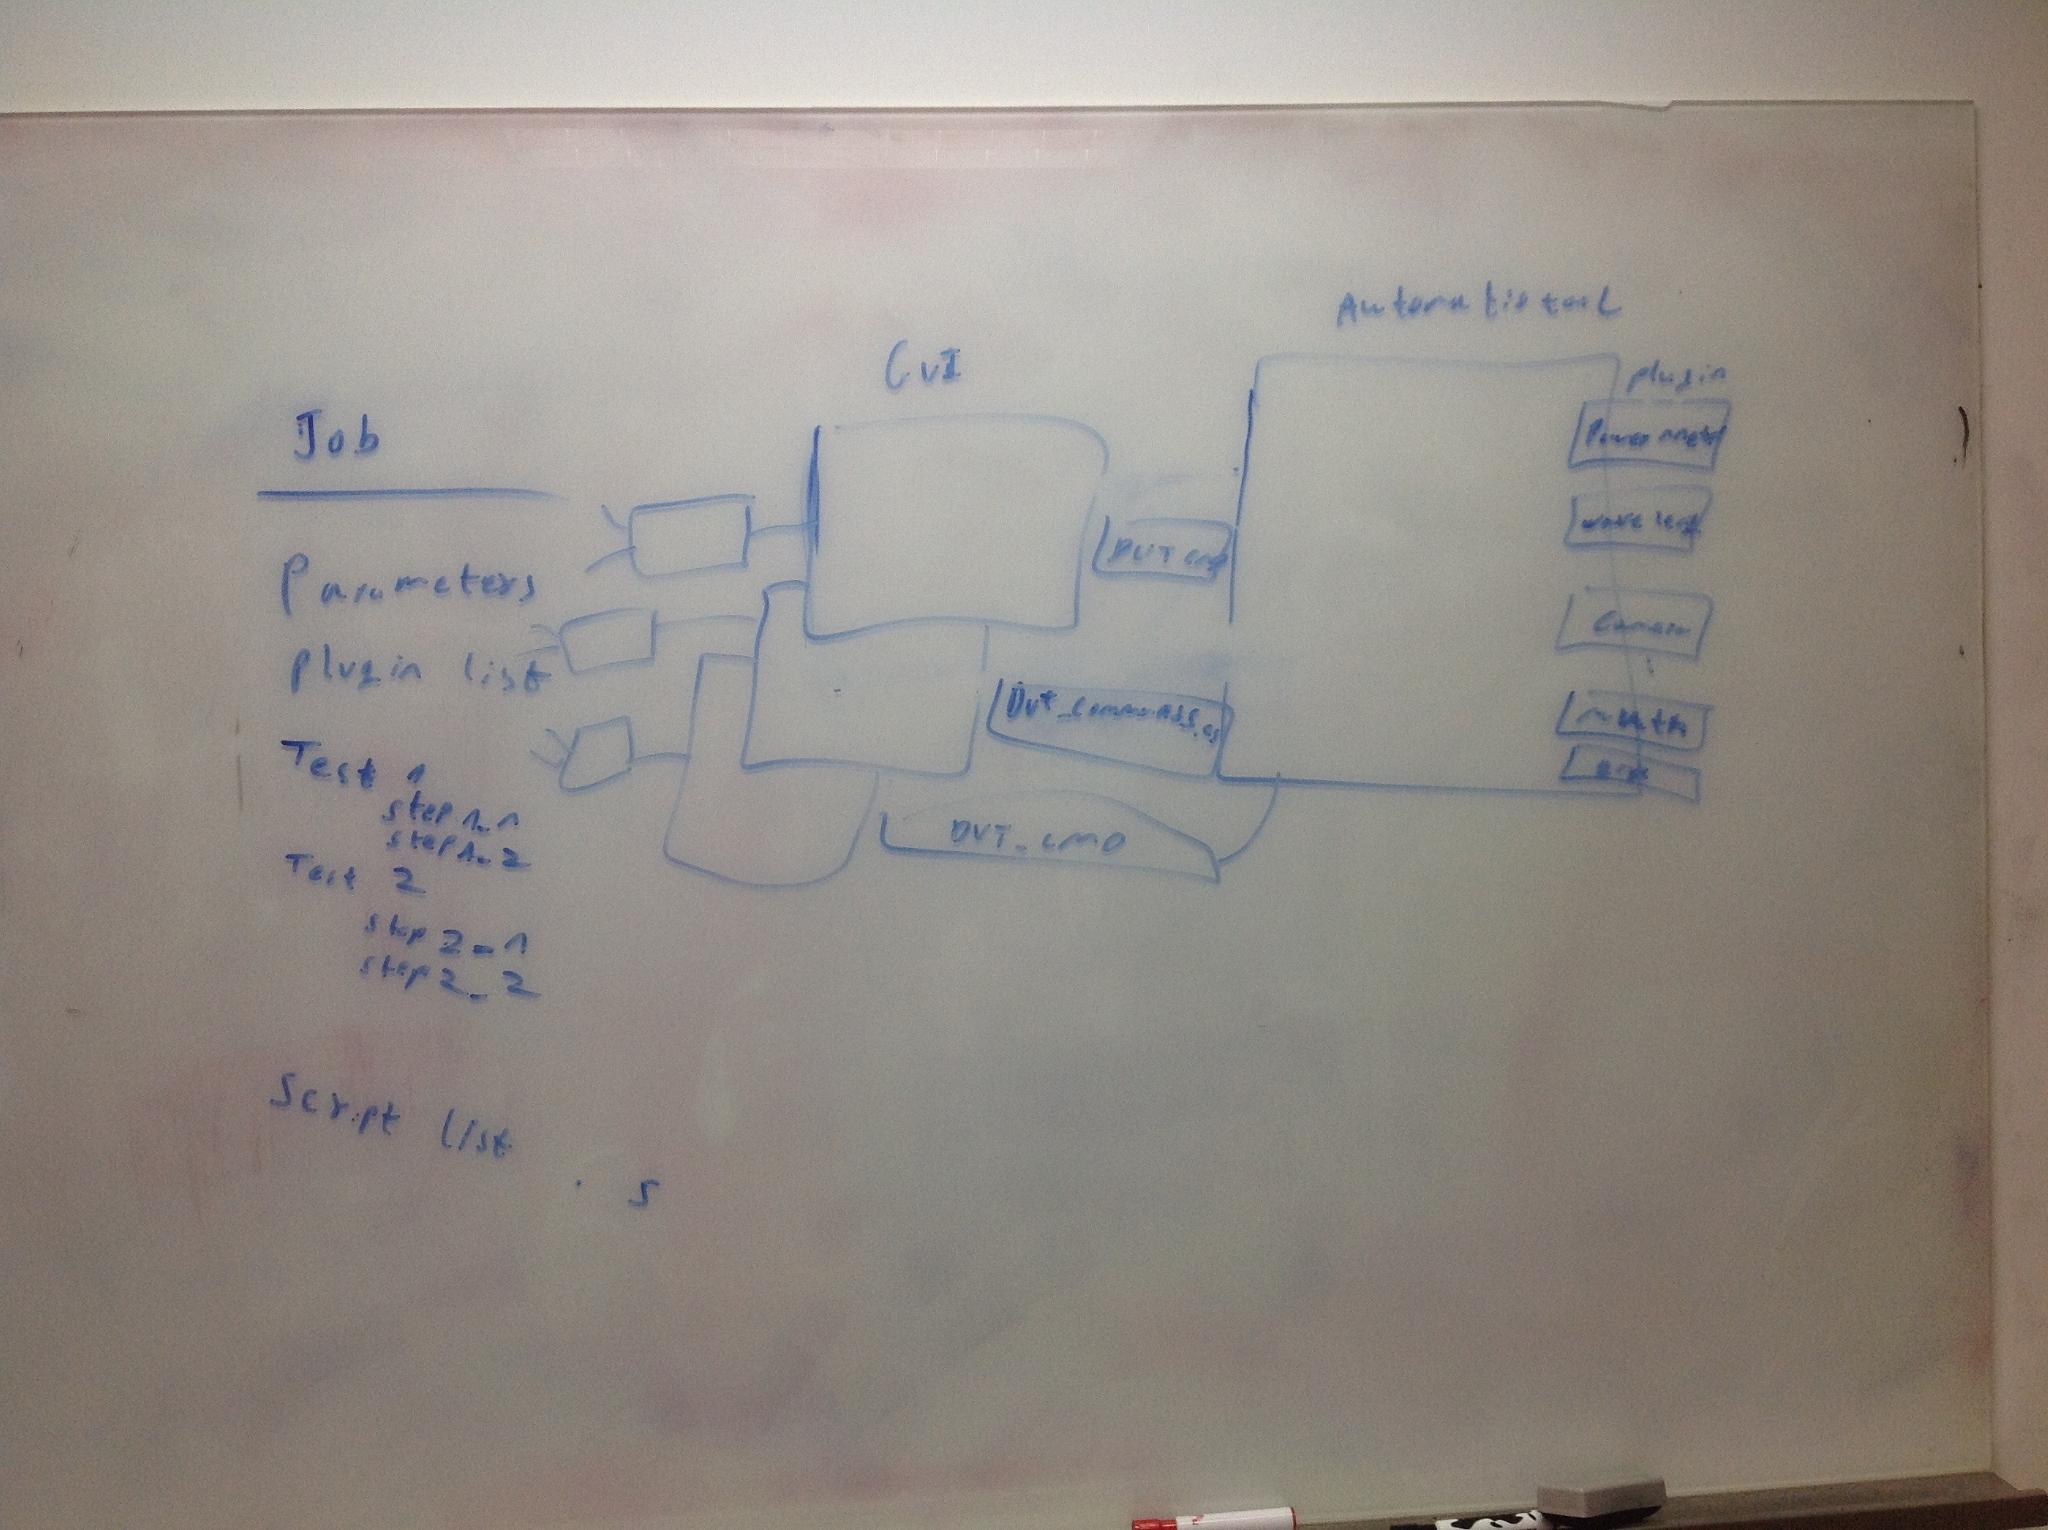 Job
Parameters
plugin list
Test 1
step 1_1
step 1_2
Test 2
step 2_1
step 2_2
Script list
. s
CVI
DUT cmd
DUT_commands.cs
DUT_CMD
Automatic tool
plugin
Power meter
wave leng
Camera